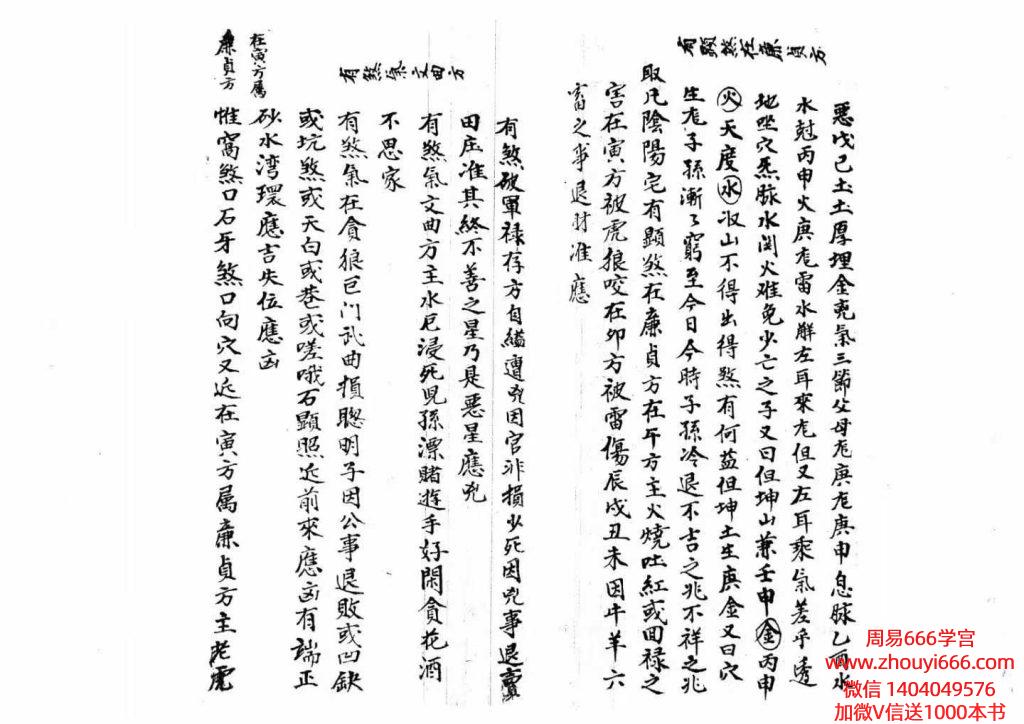 有顯煞在廉貞方
惡戊己土土厚埋金尅氣三節父母龙庚龙庚申息脉乙酉水
水尅丙申火庚龙雷水解左耳來龙但又左耳乘氣差乎透
地坐穴炁脉水関火难免少亡之子又曰但坤山兼壬申金丙申
火天度水汲山不得出得煞有何益但坤土生庚金又曰穴
生龙子孫漸々窮至今日今時子孫冷退不吉之兆不祥之兆
取凡陰陽宅有顯煞在廉貞方在午方主火燒吐紅或回禄之
害在寅方被虎狼咬在卯方被雷傷辰戌丑未因牛羊六
畜之事退財准應
有煞破軍禄存方自縊遭兇因官非損少死因兇事退賣
田庄准其終不善之星乃是惡星應兇
有煞氣文曲方
有煞氣文曲方主水厄浸死児孫漂賭遊手好閑貪花酒
不思家
有煞氣在貪狼巨门武曲損聰明子因公事退敗或凹缺
或坑煞或天白或巷或嗟哦石顕照近前來應凶有端正
砂水湾環應吉失位應凶
在寅方屬
廉貞方
惟窩煞口石牙煞口向穴又近在寅方屬廉貞方主老虎
周易666学宫
www.zhouyi666.com
微信 1404049576
加微V信送1000本书